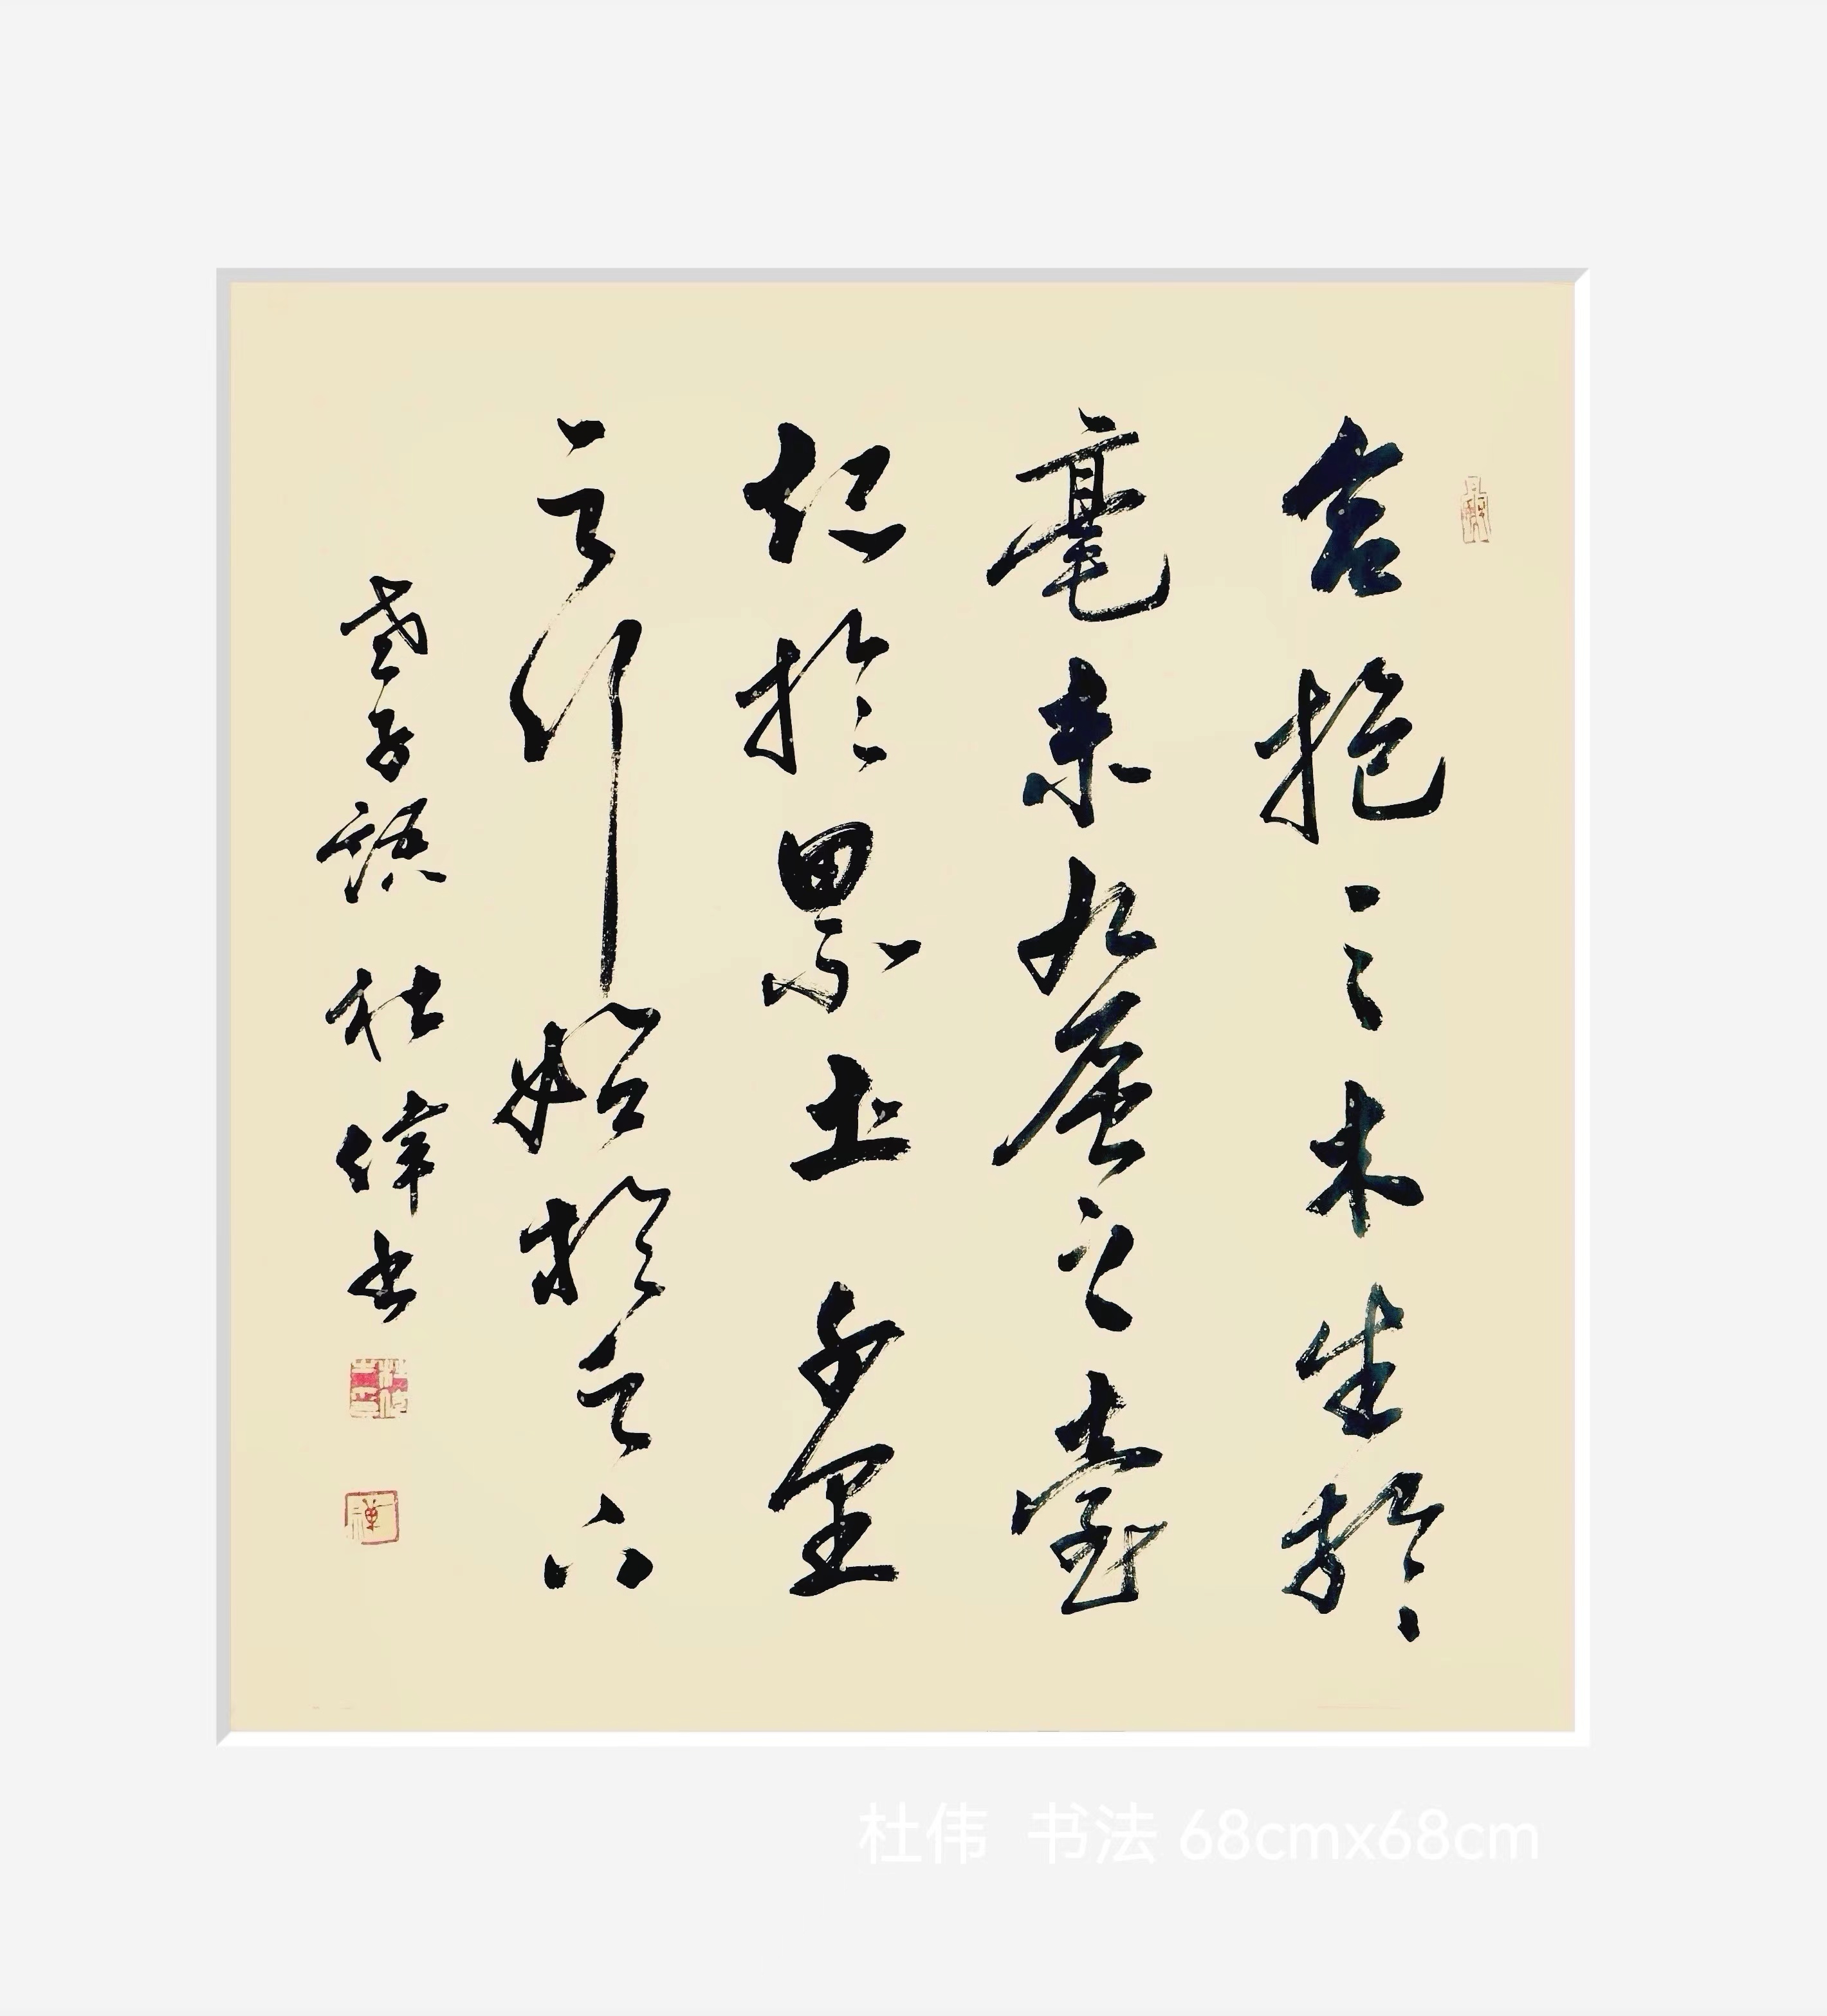 合抱之木生於
毫末九層之臺
起於累土千里
之行始於足下
老子語 杜偉書
杜伟 书法 68cmx68cm